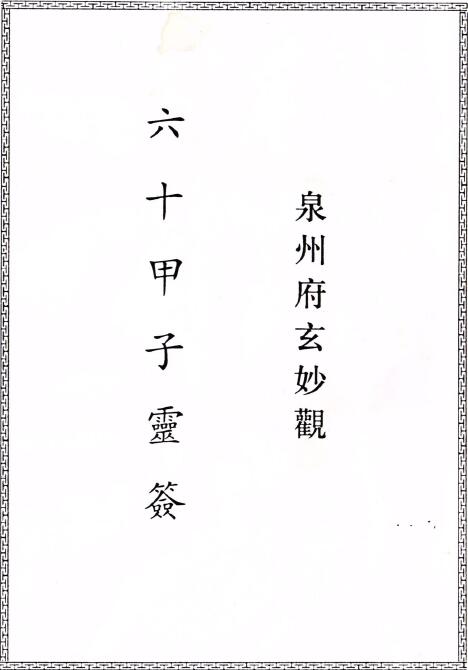 泉州府玄妙觀
六十甲子靈簽